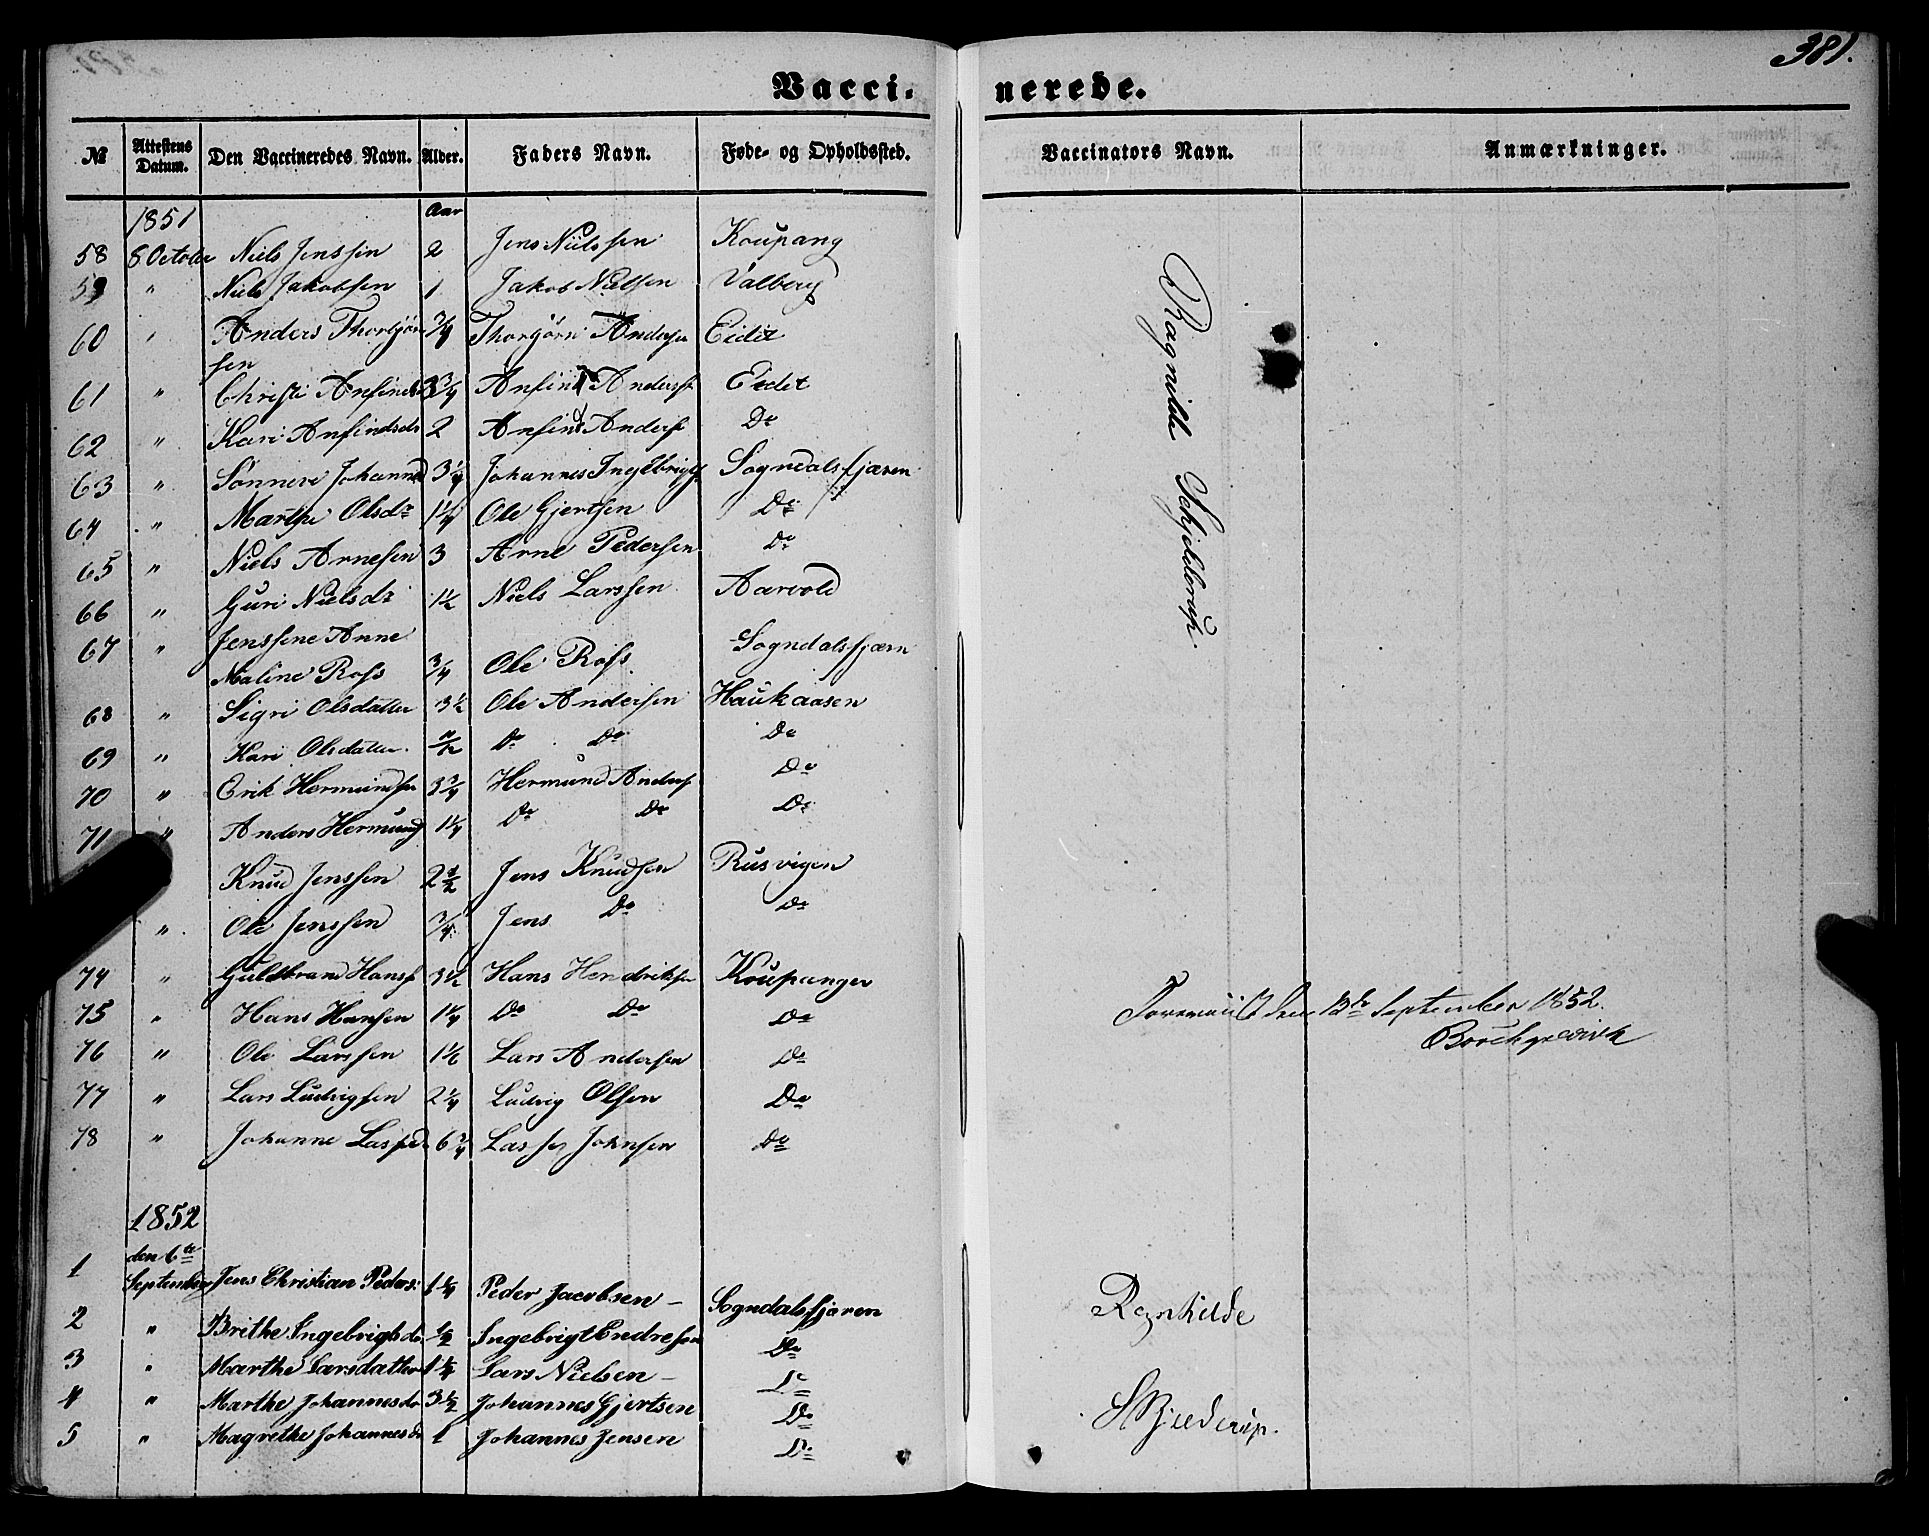 381.
Vacci- nerede.
№ Attestens Datum. Den Vaccineredes Navn. Alder. Faders Navn. Føde- og Opholdssted. Vaccinators Navn. Anmærkninger.
1851 Aar
58 8 October Niels Jenssen 2 Jens Nielssen Koupang
59 " Niels Jakobsen 1 Jakob Nielsen Valberg
60 " Anders Thorbjørn 3/4 Thorbjørn Andersen Eidet
sen
61 " Christi Anfindsd 3 3/4 Anfind Anderss Eidet
62 " Kari Anfindsdr 2 Anfind Anders Do
63 " Sønneve Johannesd 3 1/4 Johannes Ingebrigts Sogndalsfjæren
64 " Marthe Olsdr 1 1/4 Ole Gjertsen Do
65 " Niels Arnesen 3 Arne Pedersen Do
66 " Guri Nielsdr 1 1/2 Niels Larssen Aarvold
67 " Jenssine Anne
Maline Ross 3/4 Ole Ross Sogndalsfjærn
68 " Sigri Olsdatter 3 1/2 Ole Andersen Haukaasen
69 " Kari Olsdatter Do Do Do
70 " Erik Hermundsen 3 3/4 Hermund Anders Do
71 " Anders Hermunds 1 1/4 Do Do Do
Knud Jenssen 2 1/2 Jens Knudsen Rusvigen
" Ole Jenssen 3/4 Jens Do Do
74 " Guldbrand Hanss 3 1/2 Hans Hendriksen Koupanger
75 " Hans Hansen 1 1/4 Do Do Do
76 " Ole Larssen 1 1/2 Lars Andersen Do
77 " Lars Ludvigsen 2 1/4 Ludvig Olsen Do
78 " Johanne Lassed 6 3/4 Lasse Johnsen Do
Ragnilde Schjelderup.
den 13de September 1852.
Borchgrevink
1852
1 den 6te
September Jens Christian Peders: 1 1/4 Peder Jacobsen – Sogndalsfjæren
2 " Brithe Ingebrigtsdr 1/2 Ingebrigt Endresen Do
3 " Marthe Larsdatter 1 1/4 Lars Nielsen – Do
4 " Marthe Johannesdr 3 1/2 Johannes Gjertsen Do
5 " Magrethe Johannesdr 1 Johannes Jensen Do
Regnhilde
Schjelderup.